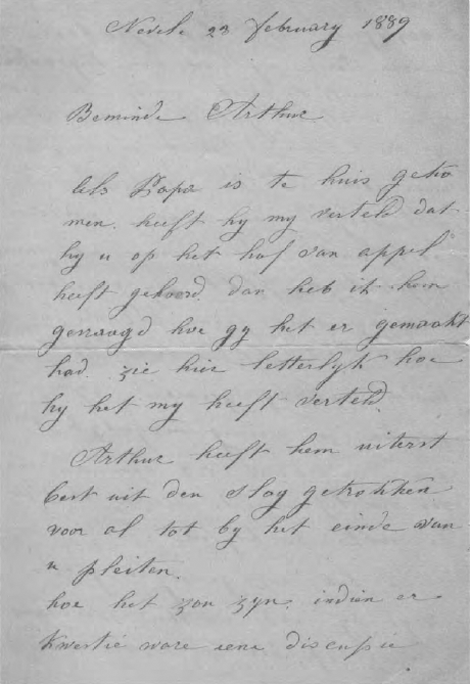 Nevele 23 february 1889
Beminde Arthur
Als Papa is te huis geko
men. heeft hy my verteld dat
hy u op het hof van appel
heeft gehoord. dan heb ik hem
gevraagd hoe gy het er gemaakt
had. zie hier letterlyk hoe
hy het my heeft verteld.
Arthur heeft hem uiterst
best uit den slag getrokken
voor al tot by het einde van
u pleiten.
hoe het zou zyn. indien er
kwestie ware eene discussie